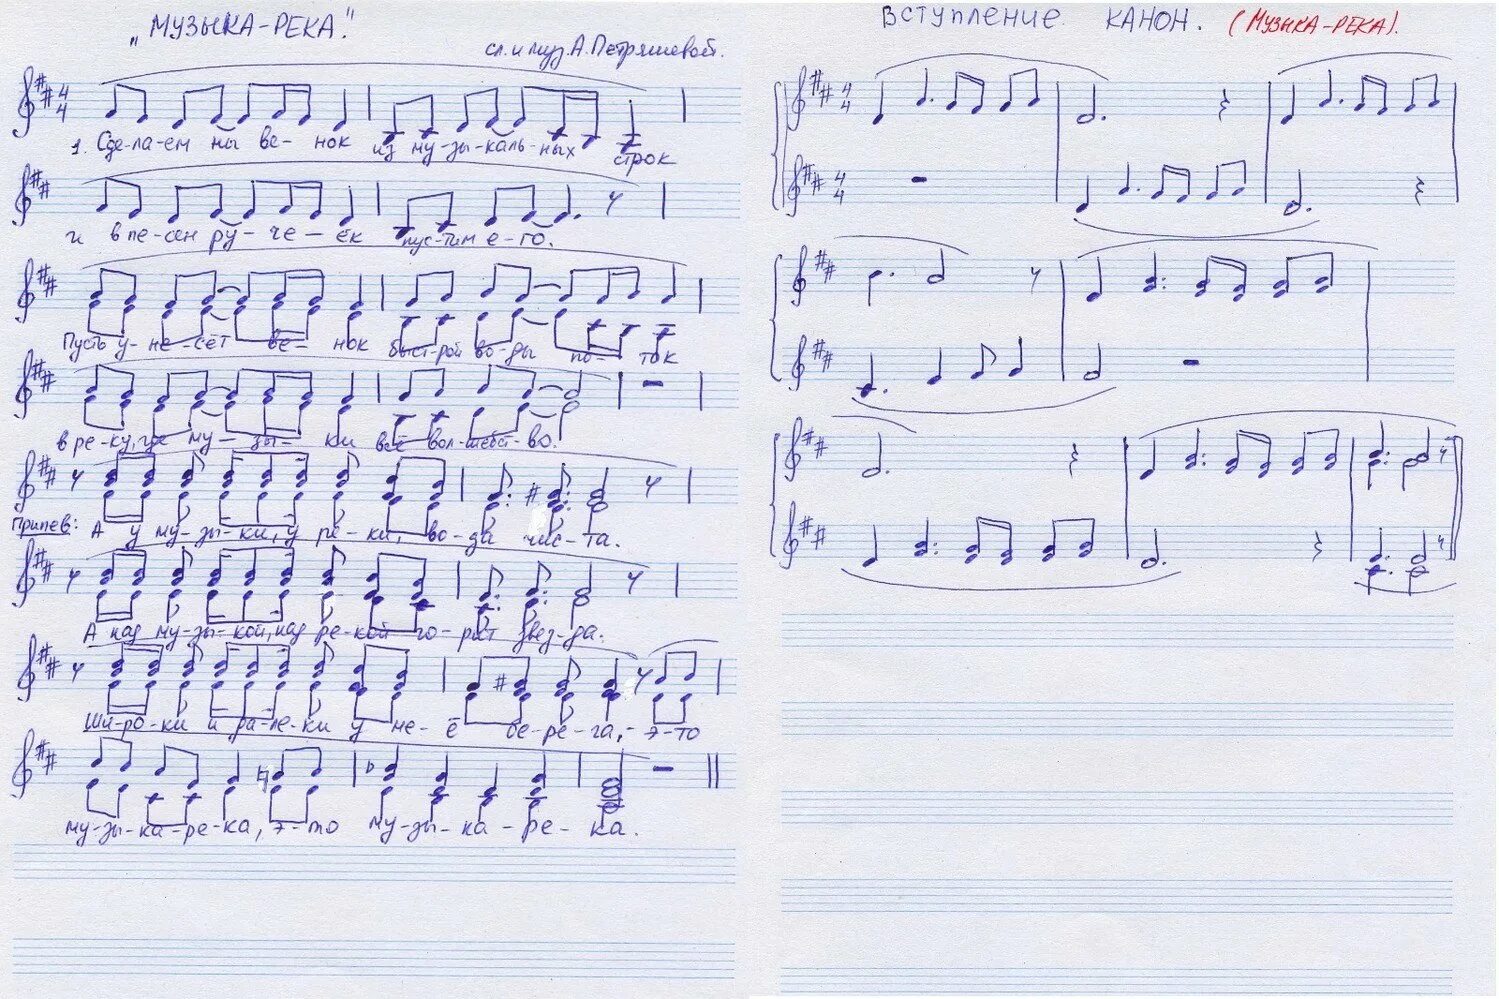 „МУЗЫКА-РЕКА."
сл. и муз. А. Петряшевой.
1. Сде-ла-ем мы ве-нок из му-зы-каль-ных строк
и в пе-сен ру-че-ёк пус-тим е-го.
Пусть у-не-сёт ве-нок быст-рой во-ды по-ток
в ре-ку, где му-зы-ки всё вол-шебст-во.
Припев: А у му-зы-ки, у ре-ки, во-да чис-та.
А над му-зы-кой, над ре-кой го-рит звез-да.
Ши-ро-ки и да-ле-ки у не-ё бе-ре-га, - э-то
му-зы-ка-ре-ка, э-то му-зы-ка-ре-ка.
ВСТУПЛЕНИЕ. КАНОН. (МУЗЫКА-РЕКА).